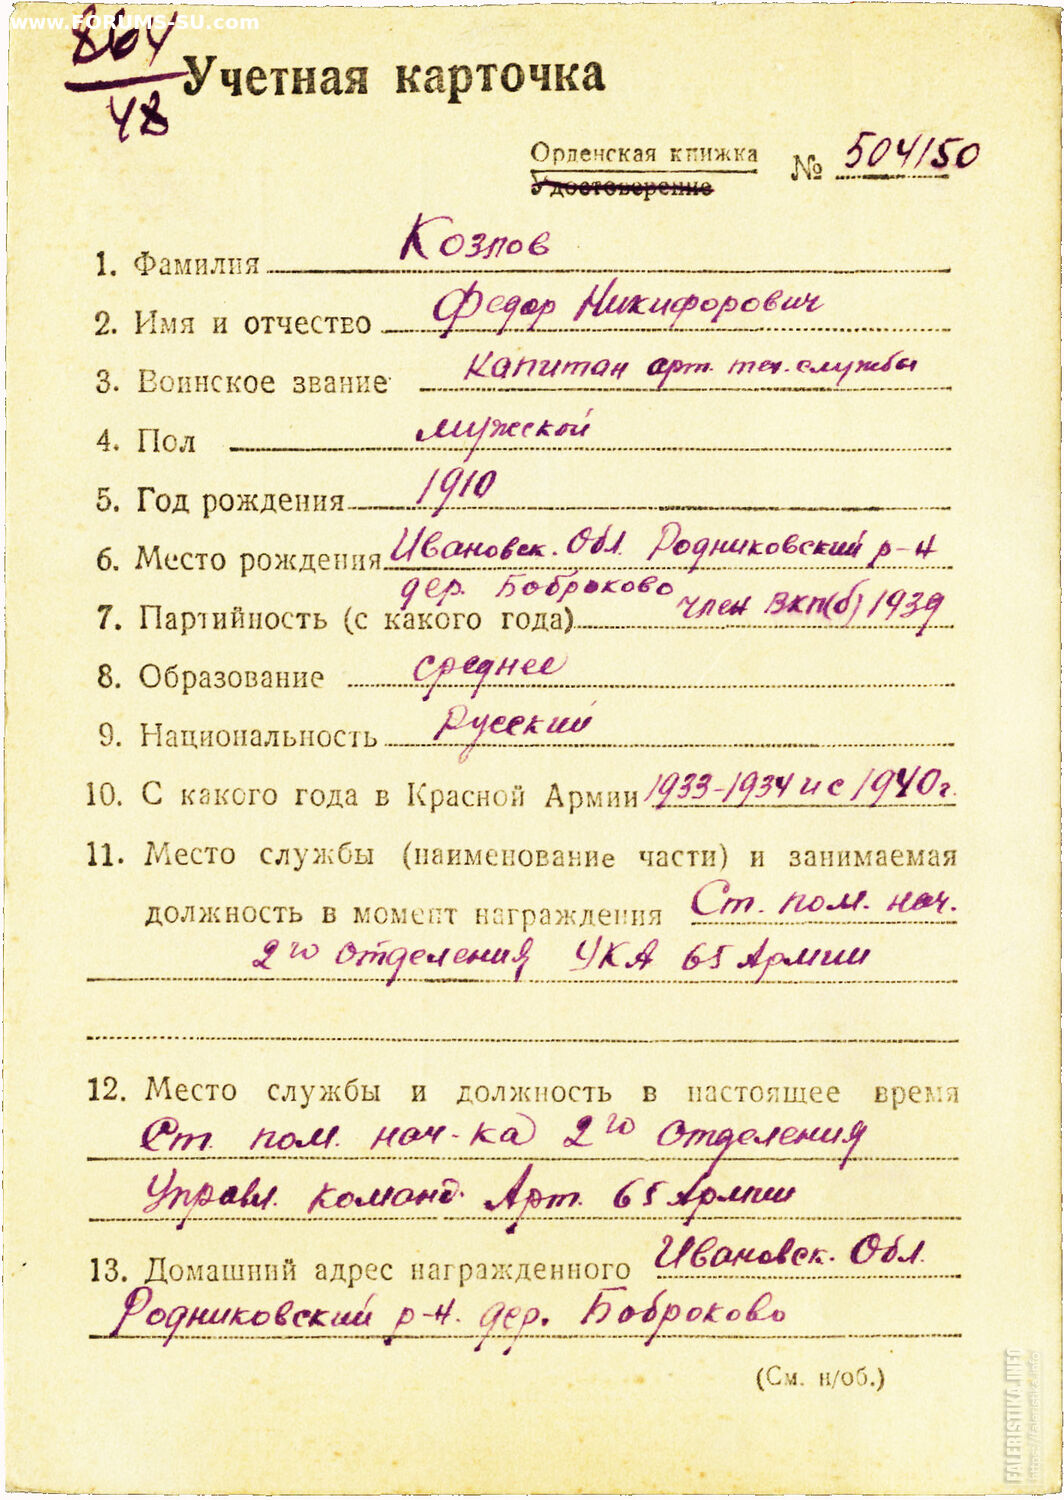 www.FORUMS-SU.com
864
48
Учетная карточка
Орденская книжка
Удостоверение
№ 504150
1. Фамилия Козлов
2. Имя и отчество Федор Никифорович
3. Воинское звание капитан арт. тех. службы
4. Пол мужской
5. Год рождения 1910
6. Место рождения Ивановск. Обл. Родниковский р-н
дер. Боброково
7. Партийность (с какого года) член ВКП(б) 1939
8. Образование среднее
9. Национальность Русский
10. С какого года в Красной Армии 1933-1934 и с 1940 г.
11. Место службы (наименование части) и занимаемая
должность в момент награждения Ст. пом. нач.
2го отделения УКА 65 Армии
12. Место службы и должность в настоящее время
Ст. пом. нач-ка 2го отделения
Управл. команд. Арт. 65 Армии
13. Домашний адрес награжденного Ивановск. Обл.
Родниковский р-н. дер. Боброково
(См. н/об.)
FALERISTIKA.INFO
https://faleristika.info